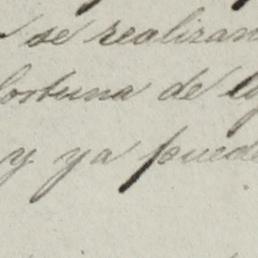 se realizan
fortuna de
y ya puede